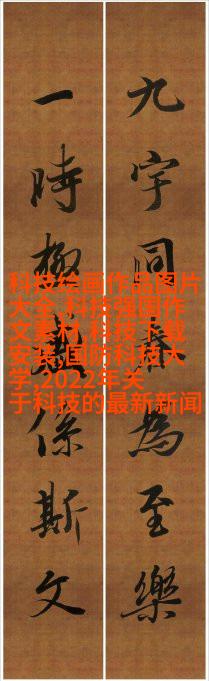 九宇同春為至樂
一時係斯文
科技绘画作品图片
大全,科技强国作
文素材,科技下载
安装,国防科技大
学,2022年关
于科技的最新新闻